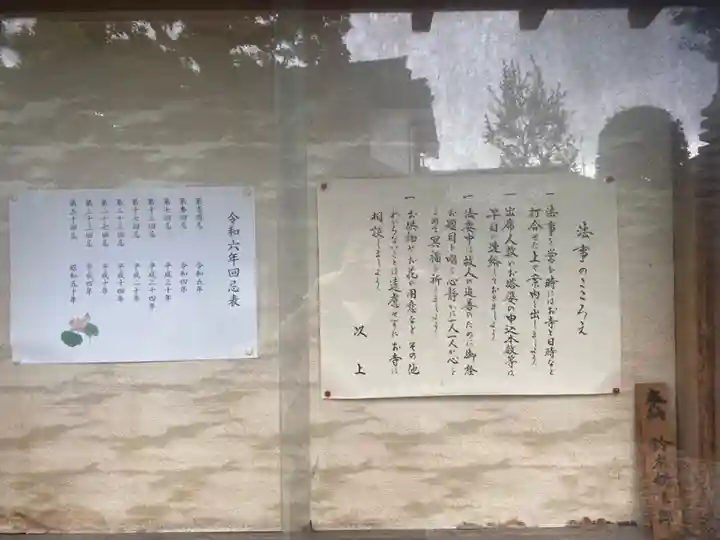 法事のこころえ
一 法事を営む時にはお寺と日時など
打合せた上で案内を出しましょう
一 出席人数やお塔婆の申込本数等は
早目に連絡しておきましょう
一 法要中は故人の追善のために御経
お題目を唱え心静かに一人一人が心を
こめて冥福を祈りましょう
一 お供物やお花の用意など その他
わからないことは遠慮せずにお寺に
相談しましょう
以上
令和六年回忌表
第壱回忌 令和五年
第参回忌 令和四年
第七回忌 平成三十年
第十三回忌 平成二十四年
第十七回忌 平成二十年
第二十三回忌 平成十四年
第二十七回忌 平成十年
第三十三回忌 平成四年
第五十回忌 昭和五十年